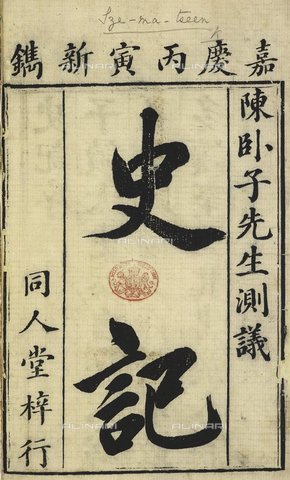 Sze-ma-tseen
嘉慶丙寅新鐫
陳卧子先生測議
史記
同人堂梓行
ALINARI
ALINARI
ALINARI
ALINARI